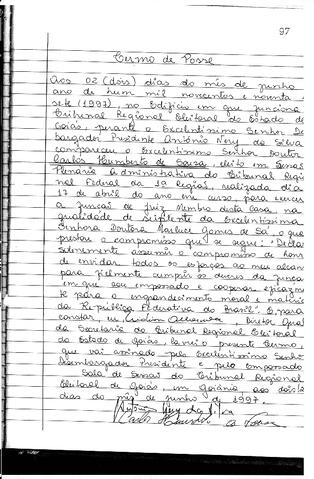 97
Termo de Posse
Aos 02 (dois) dias do mês de junho
ano de hum mil novecentos e noventa
sete (1997), no Edifício em que funciona
Tribunal Regional Eleitoral do Estado de
Goiás, perante o Excelentíssimo Senhor De
bargador Presidente Antônio Nery da Silva
compareceu o Excelentíssimo Senhor Doutor
Carlos Humberto de Sousa, eleito em Sessão
Plenária Administrativa do Tribunal Regio
nal Federal da 1ª Região, realizada dia
17 de abril do ano em curso, para exercer
a função de Juiz Membro desta casa na
qualidade de suplente da Excelentíssima
Senhora Doutora Maria Gomes de Sá, o qua
prestou o compromisso que se segue: "Declar
solenemente assumir o compromisso de honra
de envidar todos os esforços ao meu alcance
para fielmente cumprir os deveres da função
em que sou empossado e cooperar eficazmen
te para o engrandecimento moral e materia
da República Federativa do Brasil". E, para
constar, eu, Diretor Geral
da Secretaria do Tribunal Regional Eleitoral
do Estado de Goiás, lavrei o presente termo,
que vai assinado pelo Excelentíssimo Senho
Desembargador Presidente e pelo empossado.
Sala de Sessões do Tribunal Regional
Eleitoral de Goiás, em Goiânia, aos dois
dias do mês de junho de 1997.